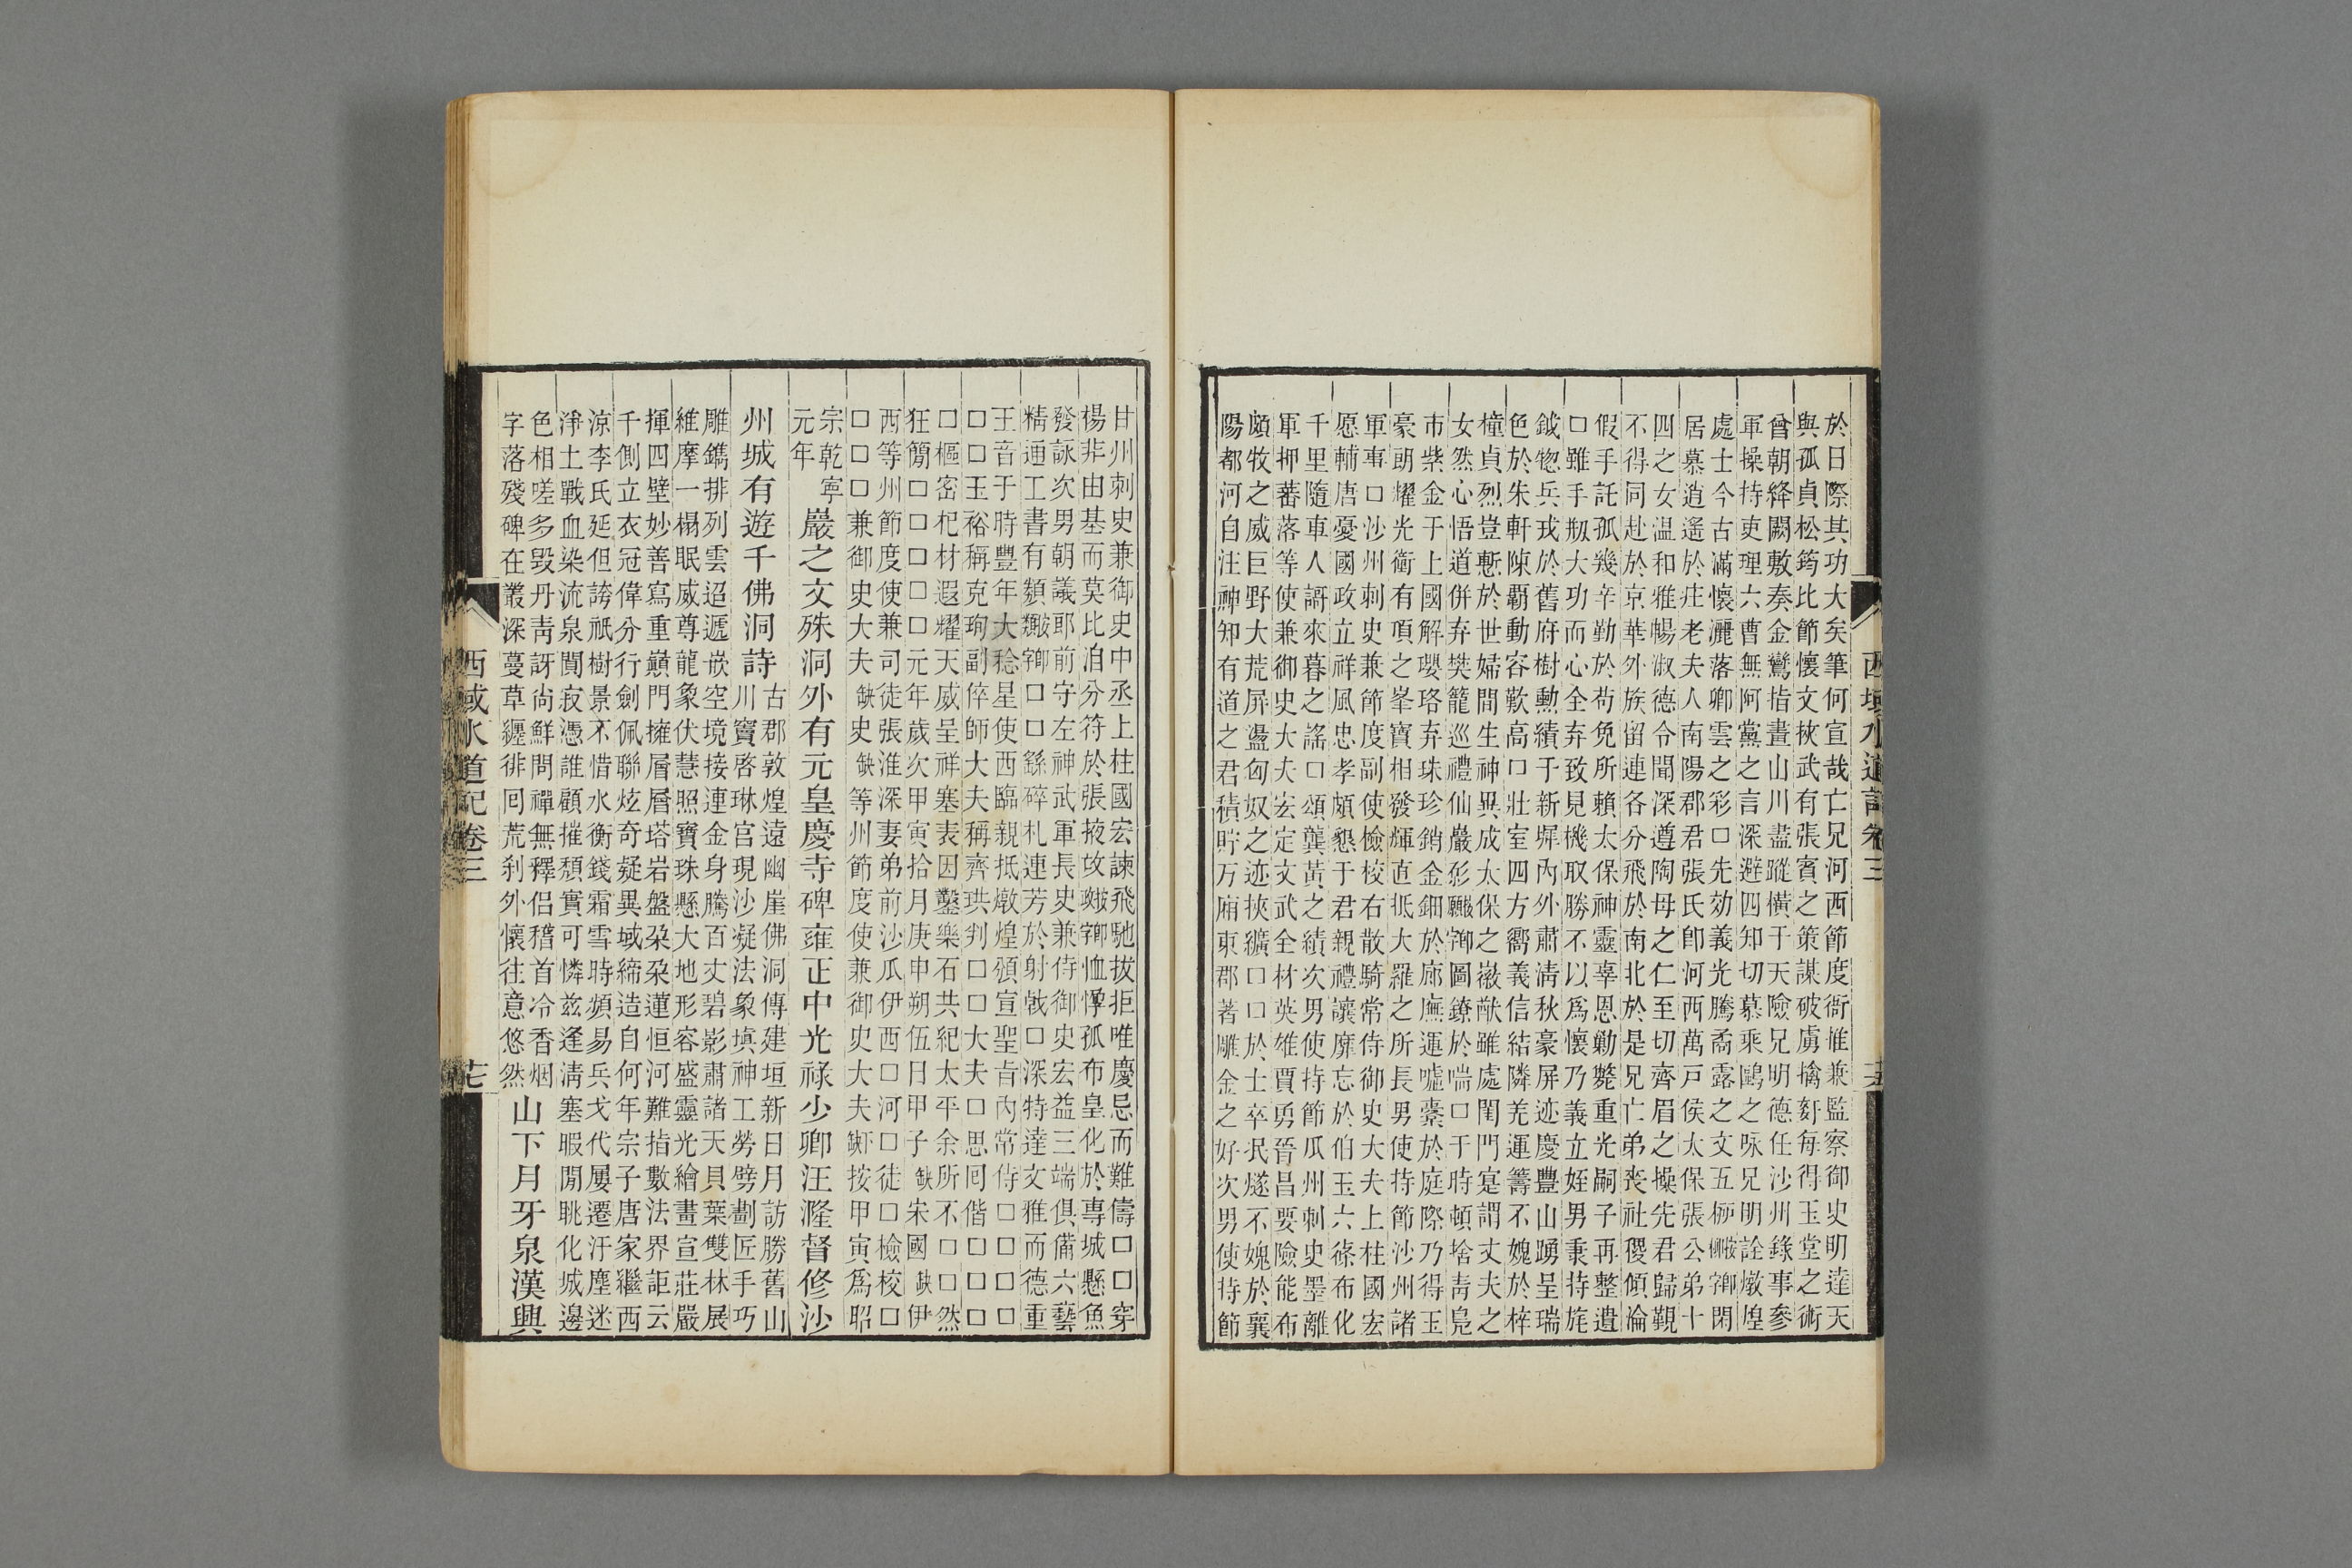 於日際其功大矣筆何宣哉亡兄河西節度衙推兼監察御史明達天
與孤貞松筠比節懷文挾武有張賓之策謀破虜擒姧每得玉堂之術
曾朝絳闕敷奏金鸞指畫山川盡蹤橫于天險兄明德任沙州錄事參
軍操持吏理六曹無阿黨之言深避四知切慕乘鷗之咏兄明詮燉煌
處士今古滿懷灑落卿雲之彩口先効義光騰矞露之文五栁閑
居慕逍遙於庄老夫人南陽郡君張氏卽河西萬戸侯太保張公弟十
四之女温和雅暢淑德令聞深遵陶母之仁至切齊眉之操先君歸觀
不得同赴於京華外族留連各分飛於南北於是兄亡弟喪社稷傾淪
假手託孤幾辛勤於苟免所賴太保神靈辜恩勦斃重光嗣子再整遺
口雖手剏大功而心全弃致見機取勝不以爲懷乃義立姪男秉持旄
鉞惣兵戎於舊府樹勳績于新墀內外肅清秋豪屏迹慶豐山踴呈瑞
色於朱軒陳霸動容歎高口壯室四方嚮義信結隣羌運籌不媿於梓
橦貞烈豈慙於世婦間生神異成太保之徽猷雖處閨門寔謂丈夫之
女然心悟道併弃樊籠巡禮仙巖彩圖鐐於喘口于時頓捨靑鳬
市柴金于上國解瓔珞弃珠珍銷金鈿於廊廡運噓橐於庭際乃得玉
豪朗耀光衝有項之峯寶相發輝直抵大羅之所長男使持節沙州諸
軍事口沙州刺史兼節度副使檢校右散騎常侍御史大夫上柱國宏
愿輔唐憂國政立祥風忠孝頗懇于君親禮讓靡忘於伯玉六條布化
千里隨車人謌來暮之謠口頌龔黃之績次男使持節瓜州刺史墨離
軍押蕃落等使兼御史大夫宏定文武全材英雄賈勇晉昌要險能布
頗牧之威巨野大荒屏盪匈奴之迹挾纊口口於士卒㞴燧不媿於襄
陽都河自注神知有道之君積貯万廂東郡著雕金之好次男使持節
西域水道記卷三
甘州刺史兼御史中丞上柱國宏諫飛馳拔拒唯慶忌而難儔口口穿
楊非由基而莫比洎分符於張掖政恤惸孤布皇化於專城懸魚
發詠次男朝議耶前守左神武軍長史兼侍御史宏益三端俱備六藝
精通工書有類口口繇碎札連芳於射戟口深特達文雅而德重
王音于時豐年大稔星使西臨親抵燉煌頒宣聖旨內常侍口口口口
口口玉裕稱克珣副倅師大夫稱齊珙判口口大夫口思囘偕口口口
口樞密杞材遐耀天威呈祥塞表因鑿樂石共紀太平余所不口口然
狂簡口口口口元年歲次甲寅拾月庚申朔伍日甲子缺宋國缺伊
西等州節度使兼司徒張淮深妻弟前沙瓜伊西口河口徒口檢校口
口口口兼御史大夫缺史缺等州節度使兼御史大夫缺下按甲寅爲昭
宗乾寧
元年
巖之文殊洞外有元皇慶寺碑雍正中光祿少卿汪漋督修沙
州城有遊千佛洞詩
古郡敦煌遠幽崖佛洞傳建垣新日月訪勝舊山
川竇啓琳宮現沙凝法象塡神工勞劈劃匠手巧
雕鐫排列雲迢遞嵌空境接連金身騰百丈碧影肅諸天貝葉雙林展
維摩一榻眠威尊龍象伏慧照寶珠懸大地形容盛靈光繪畫宣莊嚴
揮四壁妙善寫重巔門擁層層塔岩盤朶朶蓮恒河難指數法界詎云
千側立衣冠偉分行劍佩聯炫奇疑異域締造自何年宗子唐家繼西
涼李氏延但誇祇樹景不惜水衡錢霜雪時頻易兵戈代屢遷汙塵迷
淨土戰血染流泉閴寂憑誰顧摧頹實可憐兹逢淸塞暇閒眺化城邊
色相嗟多毁丹靑訝尙鮮問禪無釋侶稽首冷香烟
字落殘碑在叢深蔓草纏徘囘荒刹外懷往意悠然
山下月牙泉漢興
西域水道記卷三